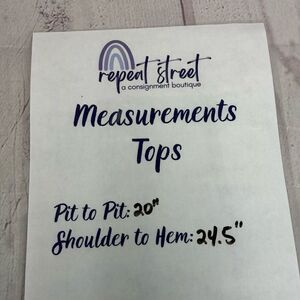 repeat street
a consignment boutique
Measurements
Tops
Pit to Pit: 20"
Shoulder to Hem: 24.5"